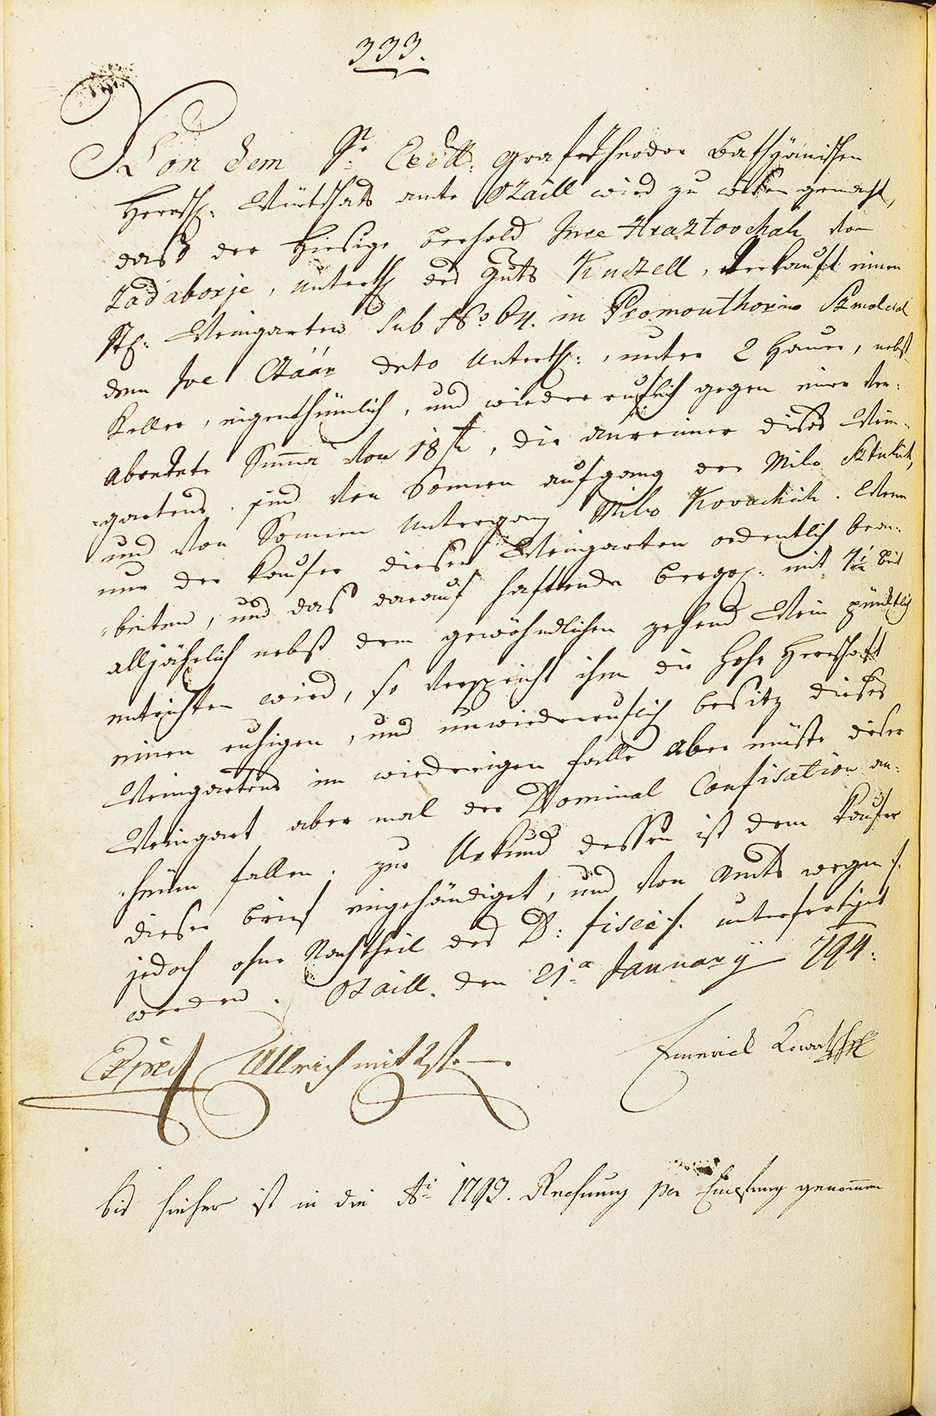 333.
Von dem Sr. Excell: Graf Theodor Batthyanischen
Herrsch: Würtschafts amte Ozaill wird zu wissen gemacht,
dass der hiesige berhold Ivve Hraztovchak von
Zadaborje, unterth: des Guts Knezell, verkauft einen
Hl: Weingarten sub No 64. in Promonthorio
dem Joe deto Unterth:, unter 2 Hauer, nebst
Keller, eigenthümlich, und wiederruflich gegen einer ver-
abredete Suma von 18 f, die anreiner dieses Wein-
-gartens sind von Sonnen aufgang der Miko
und von Sonnen Untergang Miko Kovachich. Wenn
nun der Kaufer diesen Weingarten ordentlich bear-
-beiten, und das darauf haftende bergr: mit 7½
alljährlich nebst dem gewöhndlichen zehend Wein pünktlich
entrichten wird, so verspricht ihm die hohe Herrschaft
einen ruhigen, und unwiederruflich besitz dieses
Weingartens im wiedrigen falle aber müste dieser
Weingart aber mal der Dominal Confisation an-
-heim fallen. zur Urkund dessen ist dem Kaufer
dieser brief eingehändiget, und von Amts wegen /:
jedoch ohne Nachtheil des D: fisci :/. unterfertiget
worden. Ozaill. den 21a January 794.
Exped Ullrich
Emerich
bis hieher ist in die 1793. Rechnung per Empfang genommen